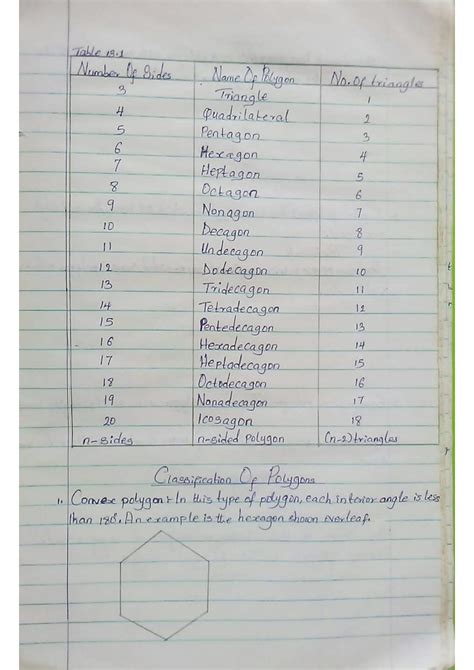 Table 13.1
Number Of Sides Name Of Polygon No. Of triangles
3 Triangle 1
4 Quadrilateral 2
5 Pentagon 3
6 Hexagon 4
7 Heptagon 5
8 Octagon 6
9 Nonagon 7
10 Decagon 8
11 Undecagon 9
12 Dodecagon 10
13 Tridecagon 11
14 Tetradecagon 12
15 Pentedecagon 13
16 Hexadecagon 14
17 Heptadecagon 15
18 Octodecagon 16
19 Nonadecagon 17
20 Icosagon 18
n-sides n-sided polygon (n-2) triangles
Classification Of Polygons
1. Convex polygon:- In this type of polygon, each interior angle is less
than 180°. An example is the hexagon shown overleaf.